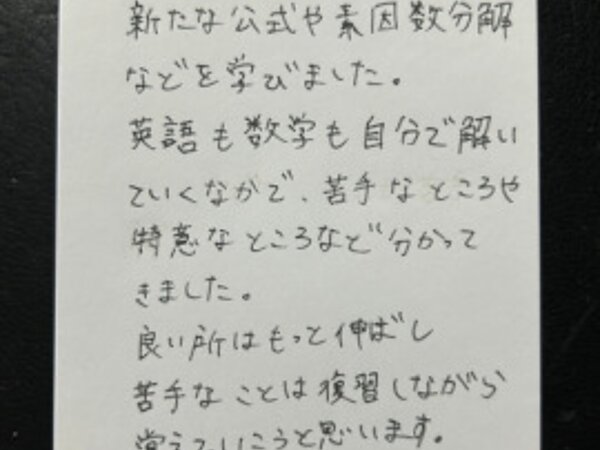 新たな公式や素因数分解
などを学びました。
英語も数学も自分で解い
ていくなかで、苦手なところや
特意なところなど分かって
きました。
良い所はもっと伸ばし
苦手なことは復習しながら
覚えていこうと思います。